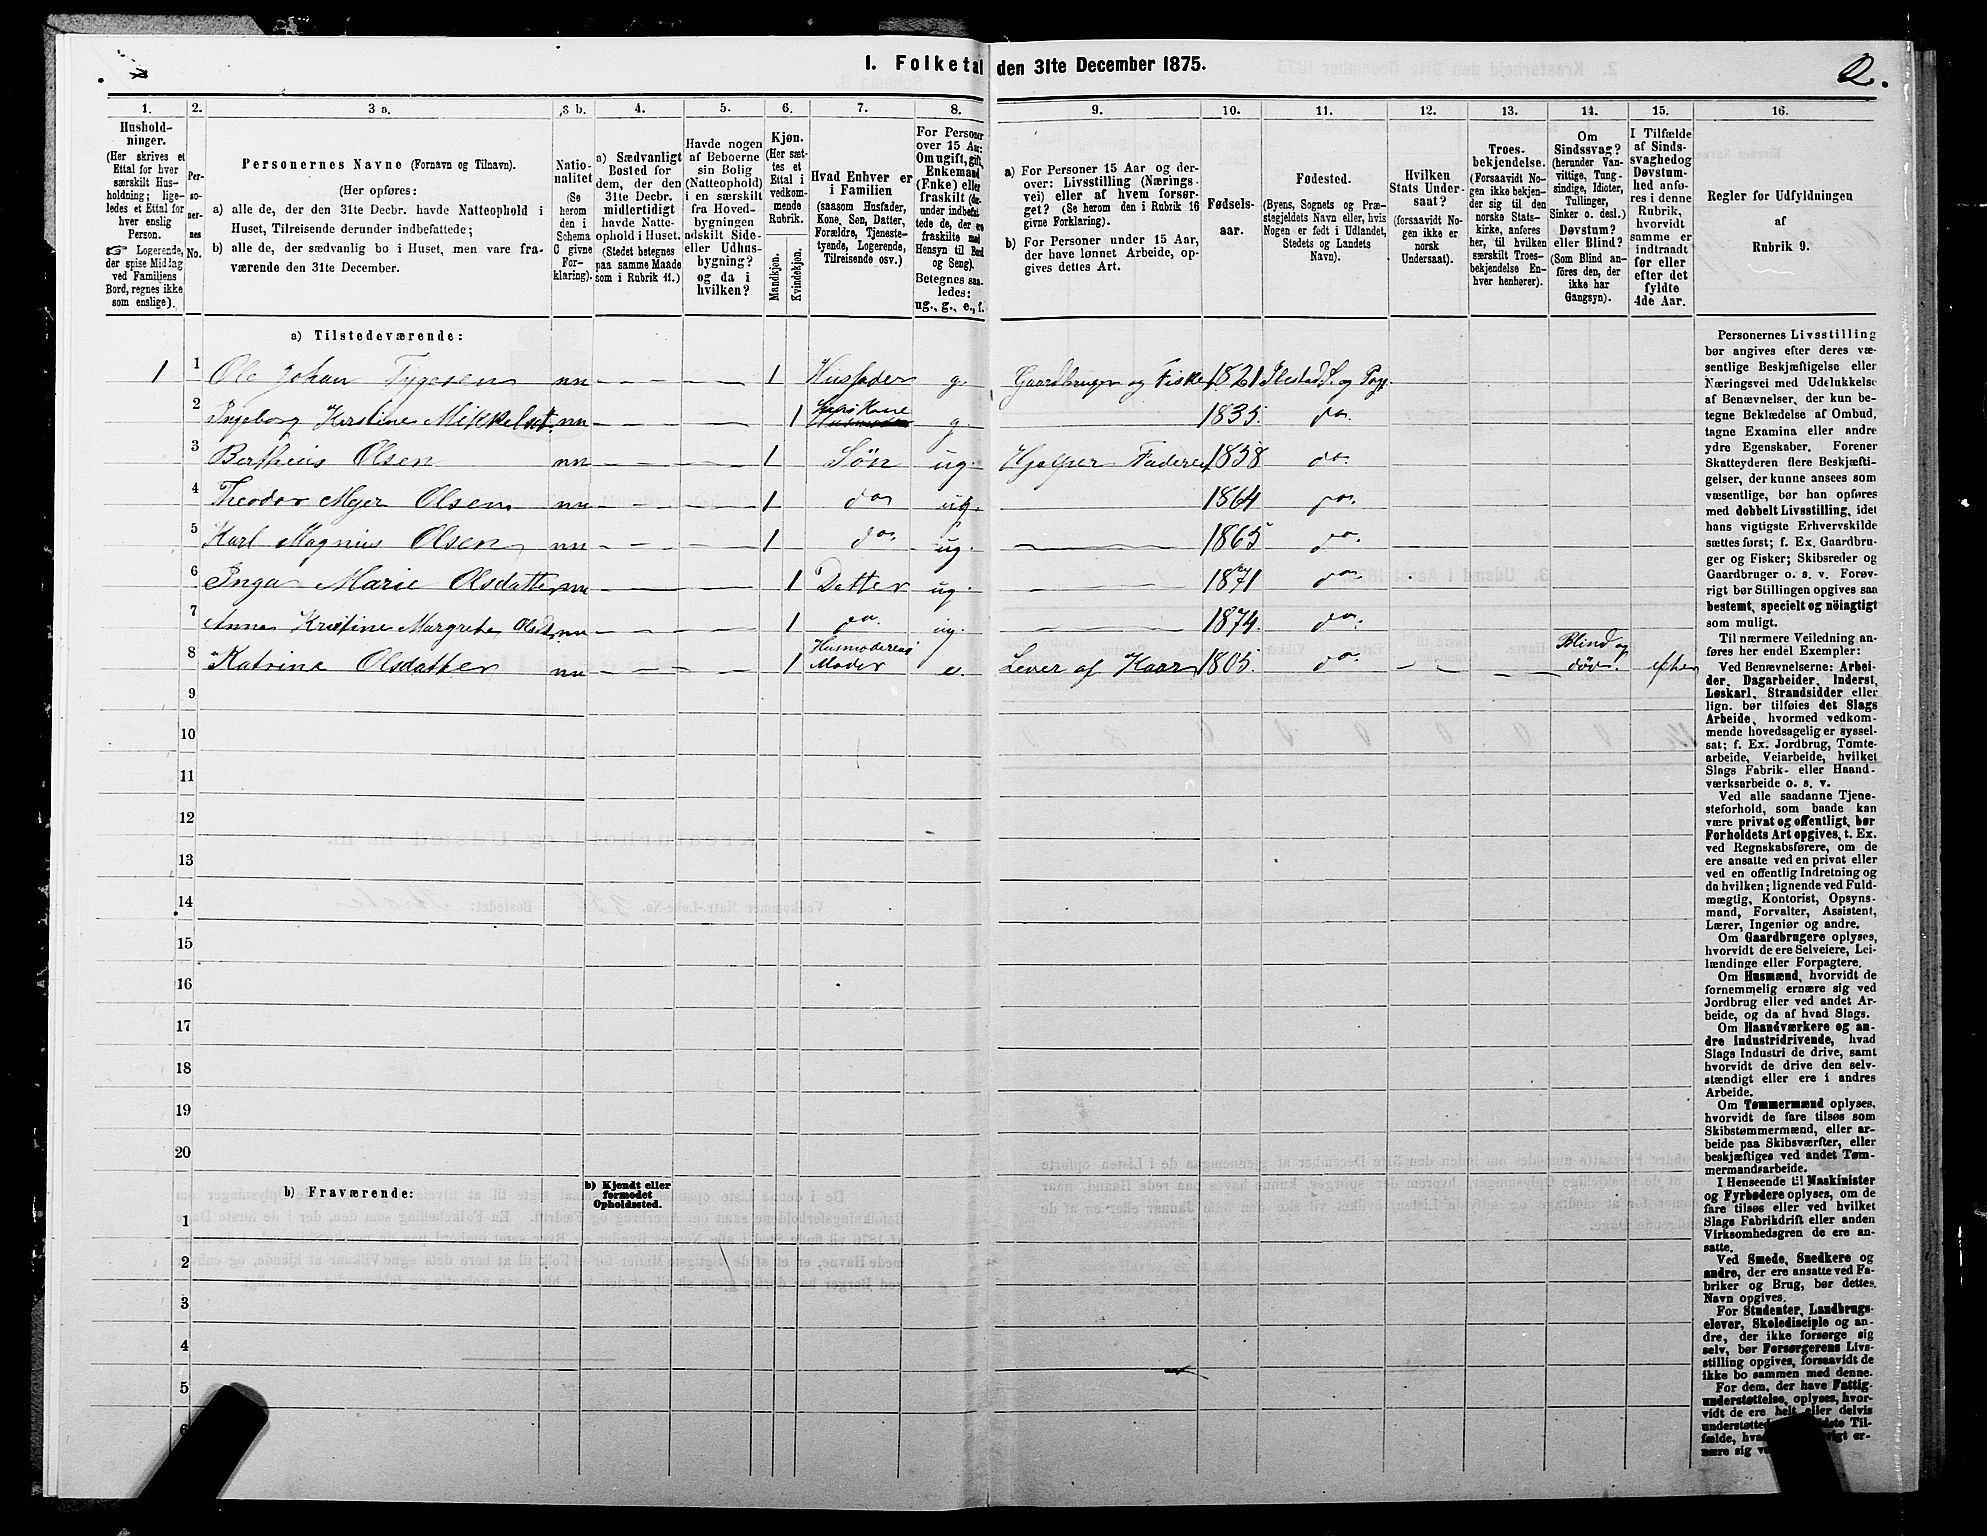 1. Folketal den 31te December 1875.
2.
1.
Hushold-
ninger.
(Her skrives et
Ettal for hver
særskilt Hus-
holdning; lige-
ledes et Ettal for
hver enslig
Person.
☞ Logerende,
der spise Middag
ved Familiens
Bord, regnes ikke
som enslige).
2.
Per-
so-
ner-
nes
No.
3 a.
Personernes Navne (Fornavn og Tilnavn).
(Her opføres:
a) alle de, der den 31te Decbr. havde Natteophold i
Huset, Tilreisende derunder indbefattede;
b) alle de, der sædvanlig bo i Huset, men vare fra-
værende den 31te December.
3 b.
Natio-
nalitet
(Se
herom
den i
Schema
C givne
For-
klaring).
4.
a) Sædvanligt
Bosted for
dem, der den
31te Decbr.
midlertidigt
havde Natte-
ophold i Huset.
(Stedet betegnes
paa samme Maade
som i Rubrik 11.)
5.
Havde nogen
af Beboerne
sin Bolig
(Natteophold)
i en særskilt
fra Hoved-
bygningen
adskilt Side-
eller Udhus-
bygning?
og da i
hvilken?
6.
Kjøn.
(Her sæt-
tes et
Ettal i
vedkom-
mende
Rubrik.
Mandkjøn.
Kvindekjøn.
7.
Hvad Enhver er
i Familien
(saasom Husfader,
Kone, Søn, Datter,
Forældre, Tjeneste-
tyende, Logerende,
Tilreisende osv.)
8.
For Personer
over 15 Aar:
Om ugift, gift,
Enkemand
(Enke) eller
fraskilt (der-
under indbefat-
tede de, der ere
fraskilte med
Hensyn til Bord
og Seng).
Betegnes saa-
ledes:
ug., g., e., f.
9.
a) For Personer 15 Aar og der-
over: Livsstilling (Nærings-
vei) eller af hvem forsør-
get? (Se herom den i Rubrik 16
givne Forklaring).
b) For Personer under 15 Aar,
der have lønnet Arbeide, op-
gives dettes Art.
10.
Fødsels-
aar.
11.
Fødested.
(Byens, Sognets og Præ-
stegjeldets Navn eller, hvis
Nogen er født i Udlandet,
Stedets og Landets
Navn).
12.
Hvilken
Stats Under-
saat?
(forsaavidt No-
gen ikke er
norsk
Undersaat).
13.
Troes-
bekjendelse.
(Forsaavidt No-
gen ikke bekjen-
der sig til den
norske Stats-
kirke, anføres
her, til hvilken
særskilt Troes-
bekjendelse En-
hver henhører).
14.
Om
Sindssvag?
(herunder Van-
vittige, Tung-
sindige, Idioter,
Tullinger,
Sinker o. desl.)
Døvstum?
eller Blind?
(Som Blind an-
føres den, der
ikke har
Gangsyn).
15.
I Tilfælde
af Sinds-
svaghed og
Døvstum-
hed anfø-
res i denne
Rubrik,
hvorvidt
samme er
indtraadt
før eller
efter det
fyldte
4de Aar.
16.
Regler for Udfyldningen
af
Rubrik 9.
a) Tilstedeværende:
1 1 Ole Johan Tygesen nn 1 Husfader g. Gaardbruger og Fisker 1821
2 Ingeborg Kirstine nn 1 hans Kone g. 1835. do.
3 Bertheus Olsen nn 1 Søn ug. Hjelper Faderen 1858 do.
4 Theodor Mejer Olsen nn 1 do ug. 1864 do.
5 Karl Magnus Olsen nn 1 do. ug. 1865 do.
6 Inga Marie Olsdatter nn 1 Datter ug. 1871 do.
7 Anna Kristine Margrete Olsd nn 1 do. ug. 1874. do.
8 Katrine Olsdatter nn 1 Husmoderens Moder e. Lever af Kaar 1805. do. Blind og døv. efter
9
10
11
12
13
14
15
16
17
18
19
20
b) Fraværende:
b) Kjendt eller
formodet
Opholdssted.
1
2
3
4
5
6
Personernes Livsstilling
bør angives efter deres væ-
sentlige Beskjæftigelse eller
Næringsvei med Udelukkelse
af Benævnelser, der kun be-
tegne Beklædelse af Ombud,
tagne Examina eller andre
ydre Egenskaber. Forener
Skatteyderen flere Beskjæfti-
gelser, der kunne ansees som
væsentlige, bør han opføres
med dobbelt Livsstilling, idet
hans vigtigste Erhvervskilde
sættes først; f. Ex. Gaardbru-
ger og Fisker; Skibsreder og
Gaardbruger o. s. v. Forøv-
rigt bør Stillingen opgives saa
bestemt, specielt og nöiagtigt
som muligt.
Til nærmere Veiledning an-
føres her endel Exempler:
Ved Benævnelserne: Arbei-
der, Dagarbeider, Inderst,
Løskarl, Strandsidder eller
lign. bør tilføies det Slags
Arbeide, hvormed vedkom-
mende hovedsagelig er syssel-
sat; f. Ex. Jordbrug, Tømte-
arbeide, Veiarbeide, hvilket
Slags Fabrik- eller Haand-
værksarbeide o. s. v.
Ved alle saadanne Tjene-
steforhold, som baade kan
være privat og offentligt, bør
Forholdets Art opgives, t. Ex.
ved Regnskabsførere, om de
ere ansatte ved en privat eller
ved en offentlig Indretning og
da hvilken; lignende ved Fuld-
mægtig, Kontorist, Opsyns-
mand, Forvalter, Assistent,
Lærer, Ingeniør og andre.
Om Gaardbrugere oplyses,
hvorvidt de ere Selveiere, Lei-
lændinge eller Forpagtere.
Om Husmænd, hvorvidt de
fornemmelig ernære sig ved
Jordbrug eller ved andet Ar-
beide, og da af hvad Slags.
Om Haandværkere og an-
dre Industridrivende, hvad
Slags Industri de drive, samt
hvorvidt de drive den selv-
stændigt eller ere i andres
Arbeide.
Om Tømmermænd oplyses,
hvorvidt de fare tilsøs som
Skibstømmermænd, eller ar-
beide paa Skibsværfter, eller
beskjæftiges ved andet Tøm-
mermandsarbeide.
I Henseende til Maskinister
og Fyrbødere oplyses, om de
fare tilsøs eller ved hvilket
Slags Fabrikdrift eller anden
Virksomhedsgren de ere an-
satte.
Ved Smede, Snedkere og
andre, der ere ansatte ved Fa-
briker og Brug, bør dettes
Navn opgives.
For Studenter, Landbrugs-
elever, Skoledisciple og an-
dre, der ikke forsørge sig
selv, bør Forsørgerens Livs-
stilling opgives, forsaavidt de
ikke bo sammen med denne.
For dem, der have Fattig-
understøttelse, oplyses, hvor-
vidt de ere helt eller delvis